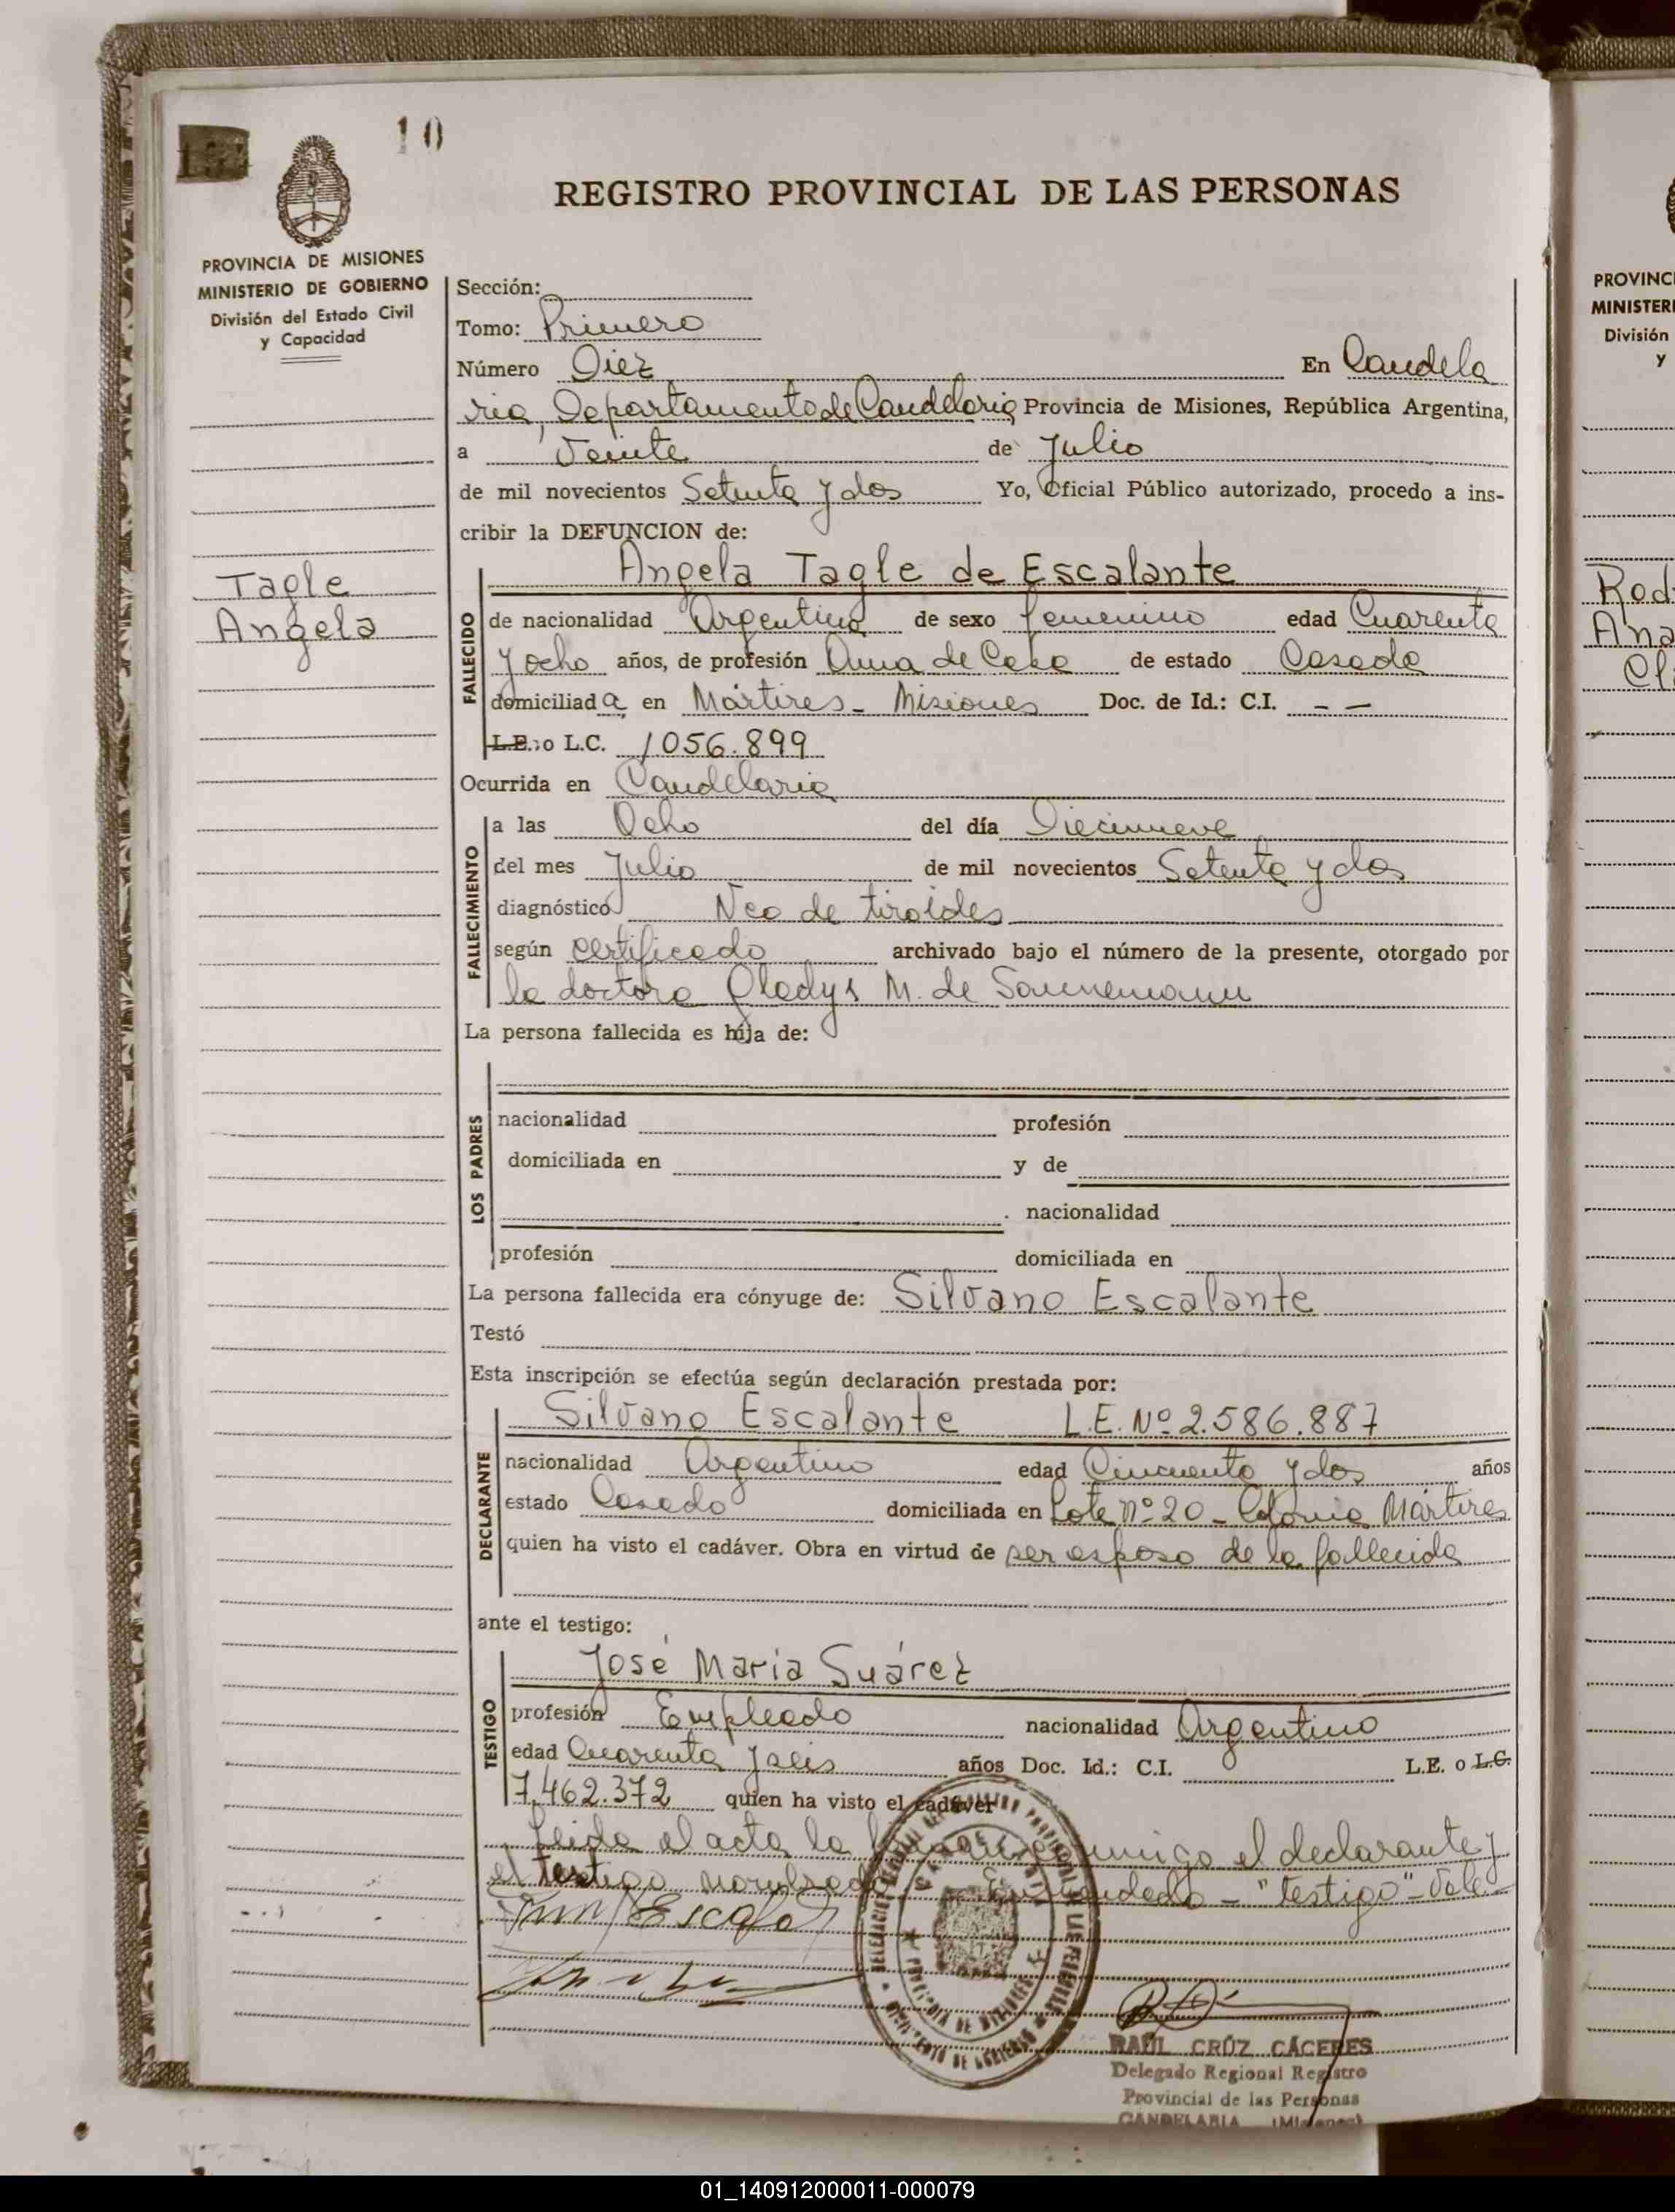 10
REGISTRO PROVINCIAL DE LAS PERSONAS
PROVINCIA DE MISIONES
MINISTERIO DE GOBIERNO
División del Estado Civil
y Capacidad
Tagle
Angela
Sección:
Tomo: Primero
Número Diez En Candela
ria, Departamento de Candelaria Provincia de Misiones, República Argentina,
a Veinte de Julio
de mil novecientos Setenta y dos Yo, Oficial Público autorizado, procedo a ins-
cribir la DEFUNCION de:
FALLECIDO
Angela Tagle de Escalante
de nacionalidad Argentina de sexo femenino edad Cuarenta
y ocho años, de profesión Ama de Casa de estado Casada
domiciliada en Mártires - Misiones Doc. de Id.: C.I. - -
L.E. o L.C. 1056.899
Ocurrida en Candelaria
FALLECIMIENTO
a las Ocho del día Diecinueve
del mes Julio de mil novecientos Setenta y dos
diagnóstico Neo de tiroides
según certificado archivado bajo el número de la presente, otorgado por
la doctora Gladys M. de Sannemann
La persona fallecida es hija de:
LOS PADRES
nacionalidad profesión
domiciliada en y de
nacionalidad
profesión domiciliada en
La persona fallecida era cónyuge de: Silvano Escalante
Testó
Esta inscripción se efectúa según declaración prestada por:
DECLARANTE
Silvano Escalante L.E. Nº 2.586.887
nacionalidad Argentino edad Cincuenta y dos años
estado Casado domiciliada en Lote nº 20 - Colonia Mártires
quien ha visto el cadáver. Obra en virtud de ser esposo de la fallecida
ante el testigo:
TESTIGO
José María Suárez
profesión Empleado nacionalidad Argentino
edad Cuarenta y seis años Doc. Id.: C.I. L.E. o L.C.
7.462.372 quien ha visto el cadáver
Leida el acta la conmigo el declarante y
el testigo - "testigo" - Vale -
RAÚL CRÚZ CÁCERES
Delegado Regional Registro
Provincial de las Personas
CANDELARIA (Misiones)
PROVINCI
MINISTERI
División
y
Rod
Ana
Cl
01_140912000011-000079